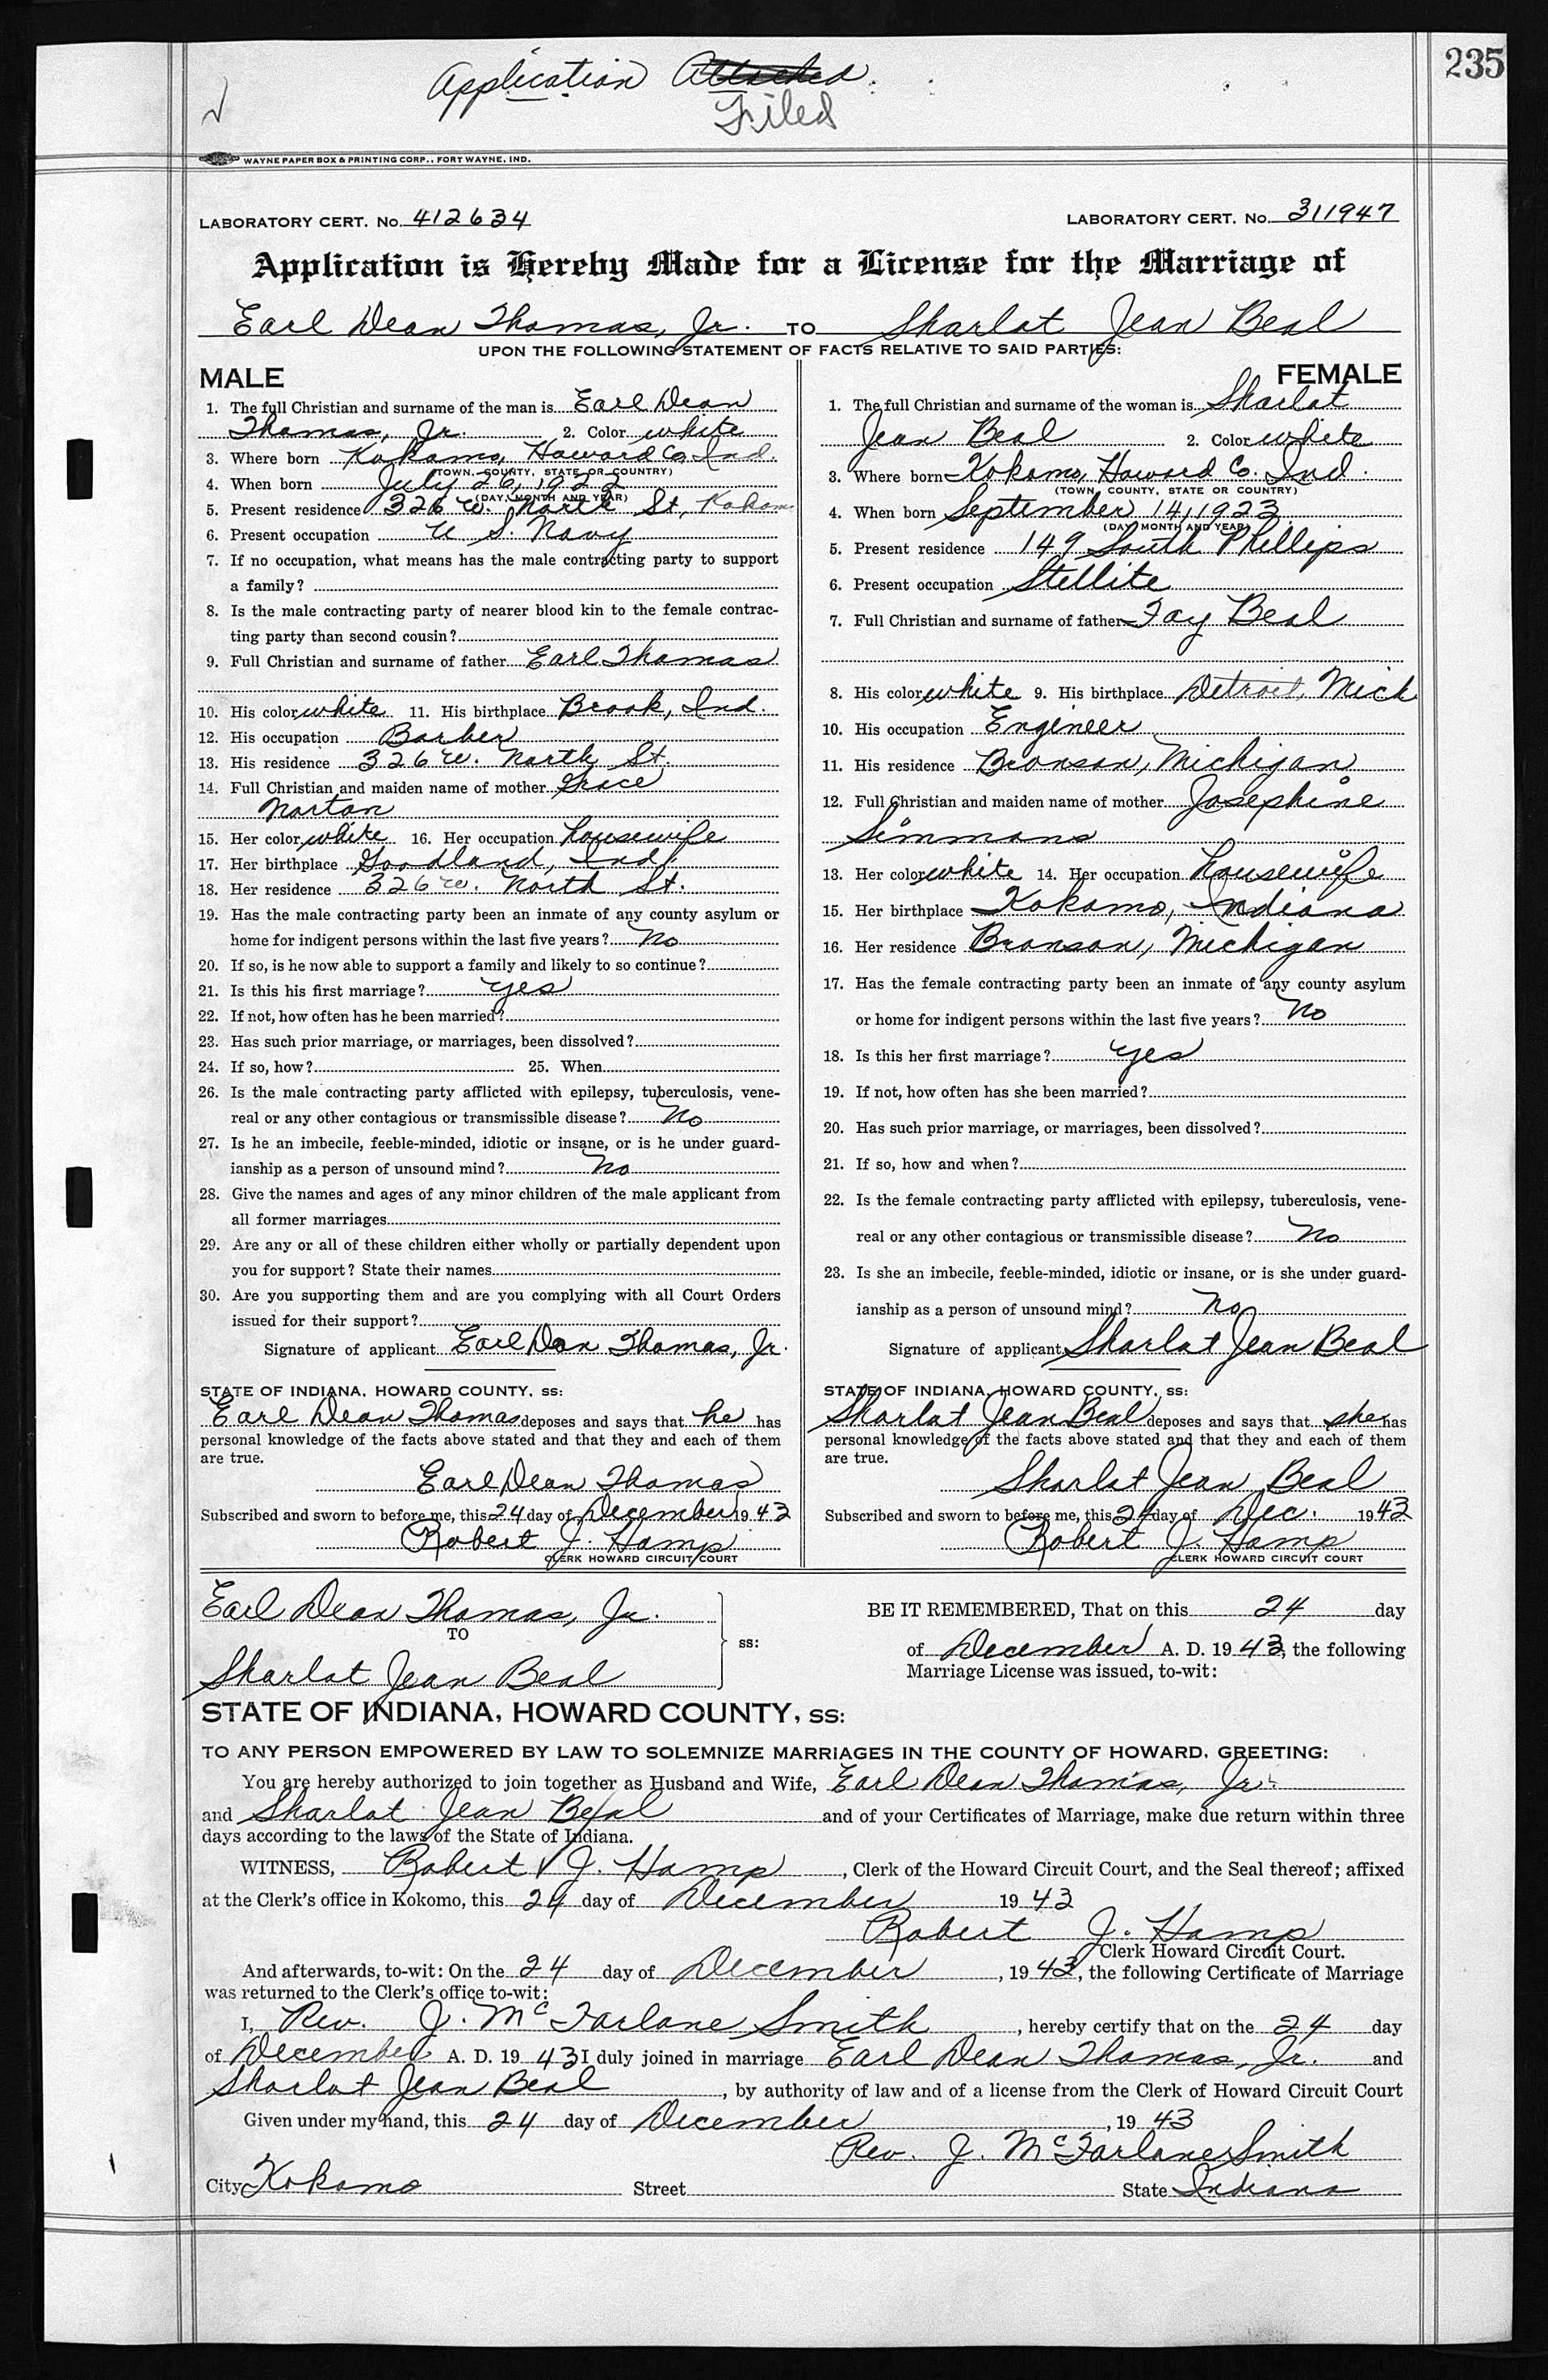 235
Application Attached.
Filed
WAYNE PAPER BOX & PRINTING CORP., FORT WAYNE, IND.
LABORATORY CERT. No. 412634
LABORATORY CERT. No. 311947
Application is Hereby Made for a License for the Marriage of
Earl Dean Thomas, Jr. TO Sharlat Jean Beal
UPON THE FOLLOWING STATEMENT OF FACTS RELATIVE TO SAID PARTIES:
MALE
1. The full Christian and surname of the man is Earl Dean
Thomas, Jr. 2. Color white
3. Where born Kokomo, Howard Co. Ind.
(TOWN, COUNTY, STATE OR COUNTRY)
4. When born July 26, 1922
(DAY, MONTH AND YEAR)
5. Present residence 326 W. North St, Kokomo
6. Present occupation U S. Navy
7. If no occupation, what means has the male contracting party to support
a family?
8. Is the male contracting party of nearer blood kin to the female contrac-
ting party than second cousin?
9. Full Christian and surname of father Earl Thomas
10. His color white 11. His birthplace Brook, Ind.
12. His occupation Barber
13. His residence 326 W. North St.
14. Full Christian and maiden name of mother Grace
Norton
15. Her color white 16. Her occupation housewife
17. Her birthplace Goodland, Ind.
18. Her residence 326 W. North St.
19. Has the male contracting party been an inmate of any county asylum or
home for indigent persons within the last five years? No
20. If so, is he now able to support a family and likely to so continue?
21. Is this his first marriage? yes
22. If not, how often has he been married?
23. Has such prior marriage, or marriages, been dissolved?
24. If so, how? 25. When
26. Is the male contracting party afflicted with epilepsy, tuberculosis, vene-
real or any other contagious or transmissible disease? No
27. Is he an imbecile, feeble-minded, idiotic or insane, or is he under guard-
ianship as a person of unsound mind? No
28. Give the names and ages of any minor children of the male applicant from
all former marriages
29. Are any or all of these children either wholly or partially dependent upon
you for support? State their names
30. Are you supporting them and are you complying with all Court Orders
issued for their support?
Signature of applicant Earl Dean Thomas, Jr.
STATE OF INDIANA, HOWARD COUNTY, ss:
Earl Dean Thomas deposes and says that he has
personal knowledge of the facts above stated and that they and each of them
are true.
Earl Dean Thomas
Subscribed and sworn to before me, this 24 day of December 1943
Robert J. Hamp
CLERK HOWARD CIRCUIT COURT
FEMALE
1. The full Christian and surname of the woman is Sharlat
Jean Beal 2. Color white
3. Where born Kokomo, Howard Co. Ind.
(TOWN, COUNTY, STATE OR COUNTRY)
4. When born September 14, 1923
(DAY MONTH AND YEAR)
5. Present residence 149 South Phillips
6. Present occupation Stellite
7. Full Christian and surname of father Fay Beal
8. His color white 9. His birthplace Detroit, Mich
10. His occupation Engineer
11. His residence Bronson, Michigan
12. Full Christian and maiden name of mother Josephine
Simmons
13. Her color white 14. Her occupation housewife
15. Her birthplace Kokomo, Indiana
16. Her residence Bronson, Michigan
17. Has the female contracting party been an inmate of any county asylum
or home for indigent persons within the last five years? No
18. Is this her first marriage? yes
19. If not, how often has she been married?
20. Has such prior marriage, or marriages, been dissolved?
21. If so, how and when?
22. Is the female contracting party afflicted with epilepsy, tuberculosis, vene-
real or any other contagious or transmissible disease? No
23. Is she an imbecile, feeble-minded, idiotic or insane, or is she under guard-
ianship as a person of unsound mind? No
Signature of applicant Sharlat Jean Beal
STATE OF INDIANA, HOWARD COUNTY, ss:
Sharlat Jean Beal deposes and says that she has
personal knowledge of the facts above stated and that they and each of them
are true.
Sharlat Jean Beal
Subscribed and sworn to before me, this 24 day of Dec. 1943
Robert J. Hamp
CLERK HOWARD CIRCUIT COURT
Earl Dean Thomas, Jr.
TO
Sharlat Jean Beal
ss:
BE IT REMEMBERED, That on this 24 day
of December A. D. 1943, the following
Marriage License was issued, to-wit:
STATE OF INDIANA, HOWARD COUNTY, SS:
TO ANY PERSON EMPOWERED BY LAW TO SOLEMNIZE MARRIAGES IN THE COUNTY OF HOWARD, GREETING:
You are hereby authorized to join together as Husband and Wife, Earl Dean Thomas, Jr.
and Sharlat Jean Beal and of your Certificates of Marriage, make due return within three
days according to the laws of the State of Indiana.
WITNESS, Robert J. Hamp, Clerk of the Howard Circuit Court, and the Seal thereof; affixed
at the Clerk's office in Kokomo, this 24 day of December 1943
Robert J. Hamp
Clerk Howard Circuit Court.
And afterwards, to-wit: On the 24 day of December, 1943, the following Certificate of Marriage
was returned to the Clerk's office to-wit:
I, Rev. J. McFarlane Smith, hereby certify that on the 24 day
of December A. D. 1943 I duly joined in marriage Earl Dean Thomas, Jr. and
Sharlat Jean Beal, by authority of law and of a license from the Clerk of Howard Circuit Court
Given under my hand, this 24 day of December, 1943
Rev. J. McFarlane Smith
City Kokomo Street State Indiana